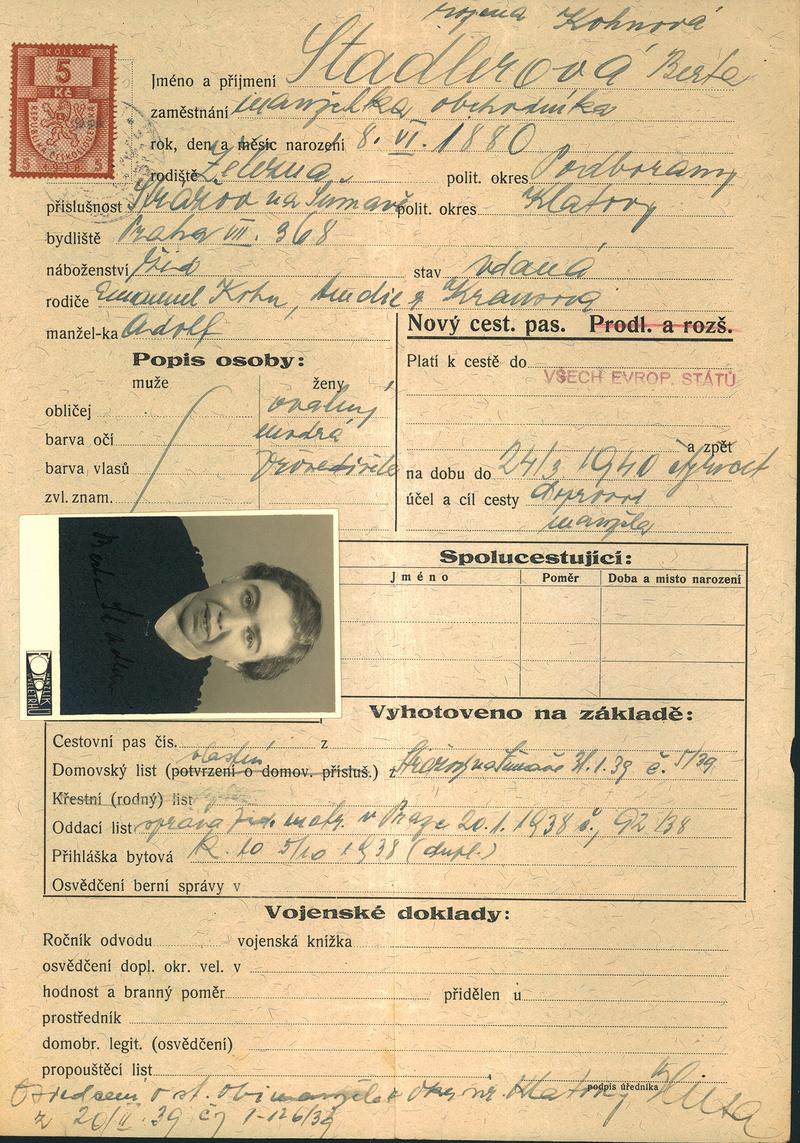 rozená Kohnová
KOLEK
5
Kč
Jméno a příjmení Stadlerová Berta
zaměstnání manželka obchodníka
rok, den a měsíc narození 8. VI. 1880
rodiště Železná polit. okres Podbořany
příslušnost Strážov na Šumavě polit. okres Klatovy
bydliště Praha VII. 368
náboženství žid stav vdaná
rodiče Emanuel Kohn, Krausová
manžel-ka Adolf
Nový cest. pas. Prodl. a rozš.
Popis osoby:
muže ženy
Platí k cestě do
VŠECH EVROP. STÁTŮ
obličej oválný
barva očí modrá
barva vlasů prošedivělá
zvl. znam.
a zpět
na dobu do 24/2 1940
účel a cíl cesty Doprovod
manžela
Spolucestující:
Jméno Poměr Doba a místo narození
Vyhotoveno na základě:
Cestovní pas čís. z
vlastní
Domovský list (potvrzení o domov. přísluš.) z Strážov na Šumavě 31.1.39 č. 5/39
Křestní (rodný) list
Oddací list správa žid. matr. v Praze 20.1.1938 č. 92/38
Přihláška bytová R. 10 5/10 1938 (dupl.)
Osvědčení berní správy v
Vojenské doklady:
Ročník odvodu vojenská knížka
osvědčení dopl. okr. vel. v
hodnost a branný poměr přidělen u
prostředník
domobr. legit. (osvědčení)
propouštěcí list
podpis úředníka
Osvědčení o st. obč. manžela Okr. úř. Klatovy
z 20/II. 39 čj 1-126/39